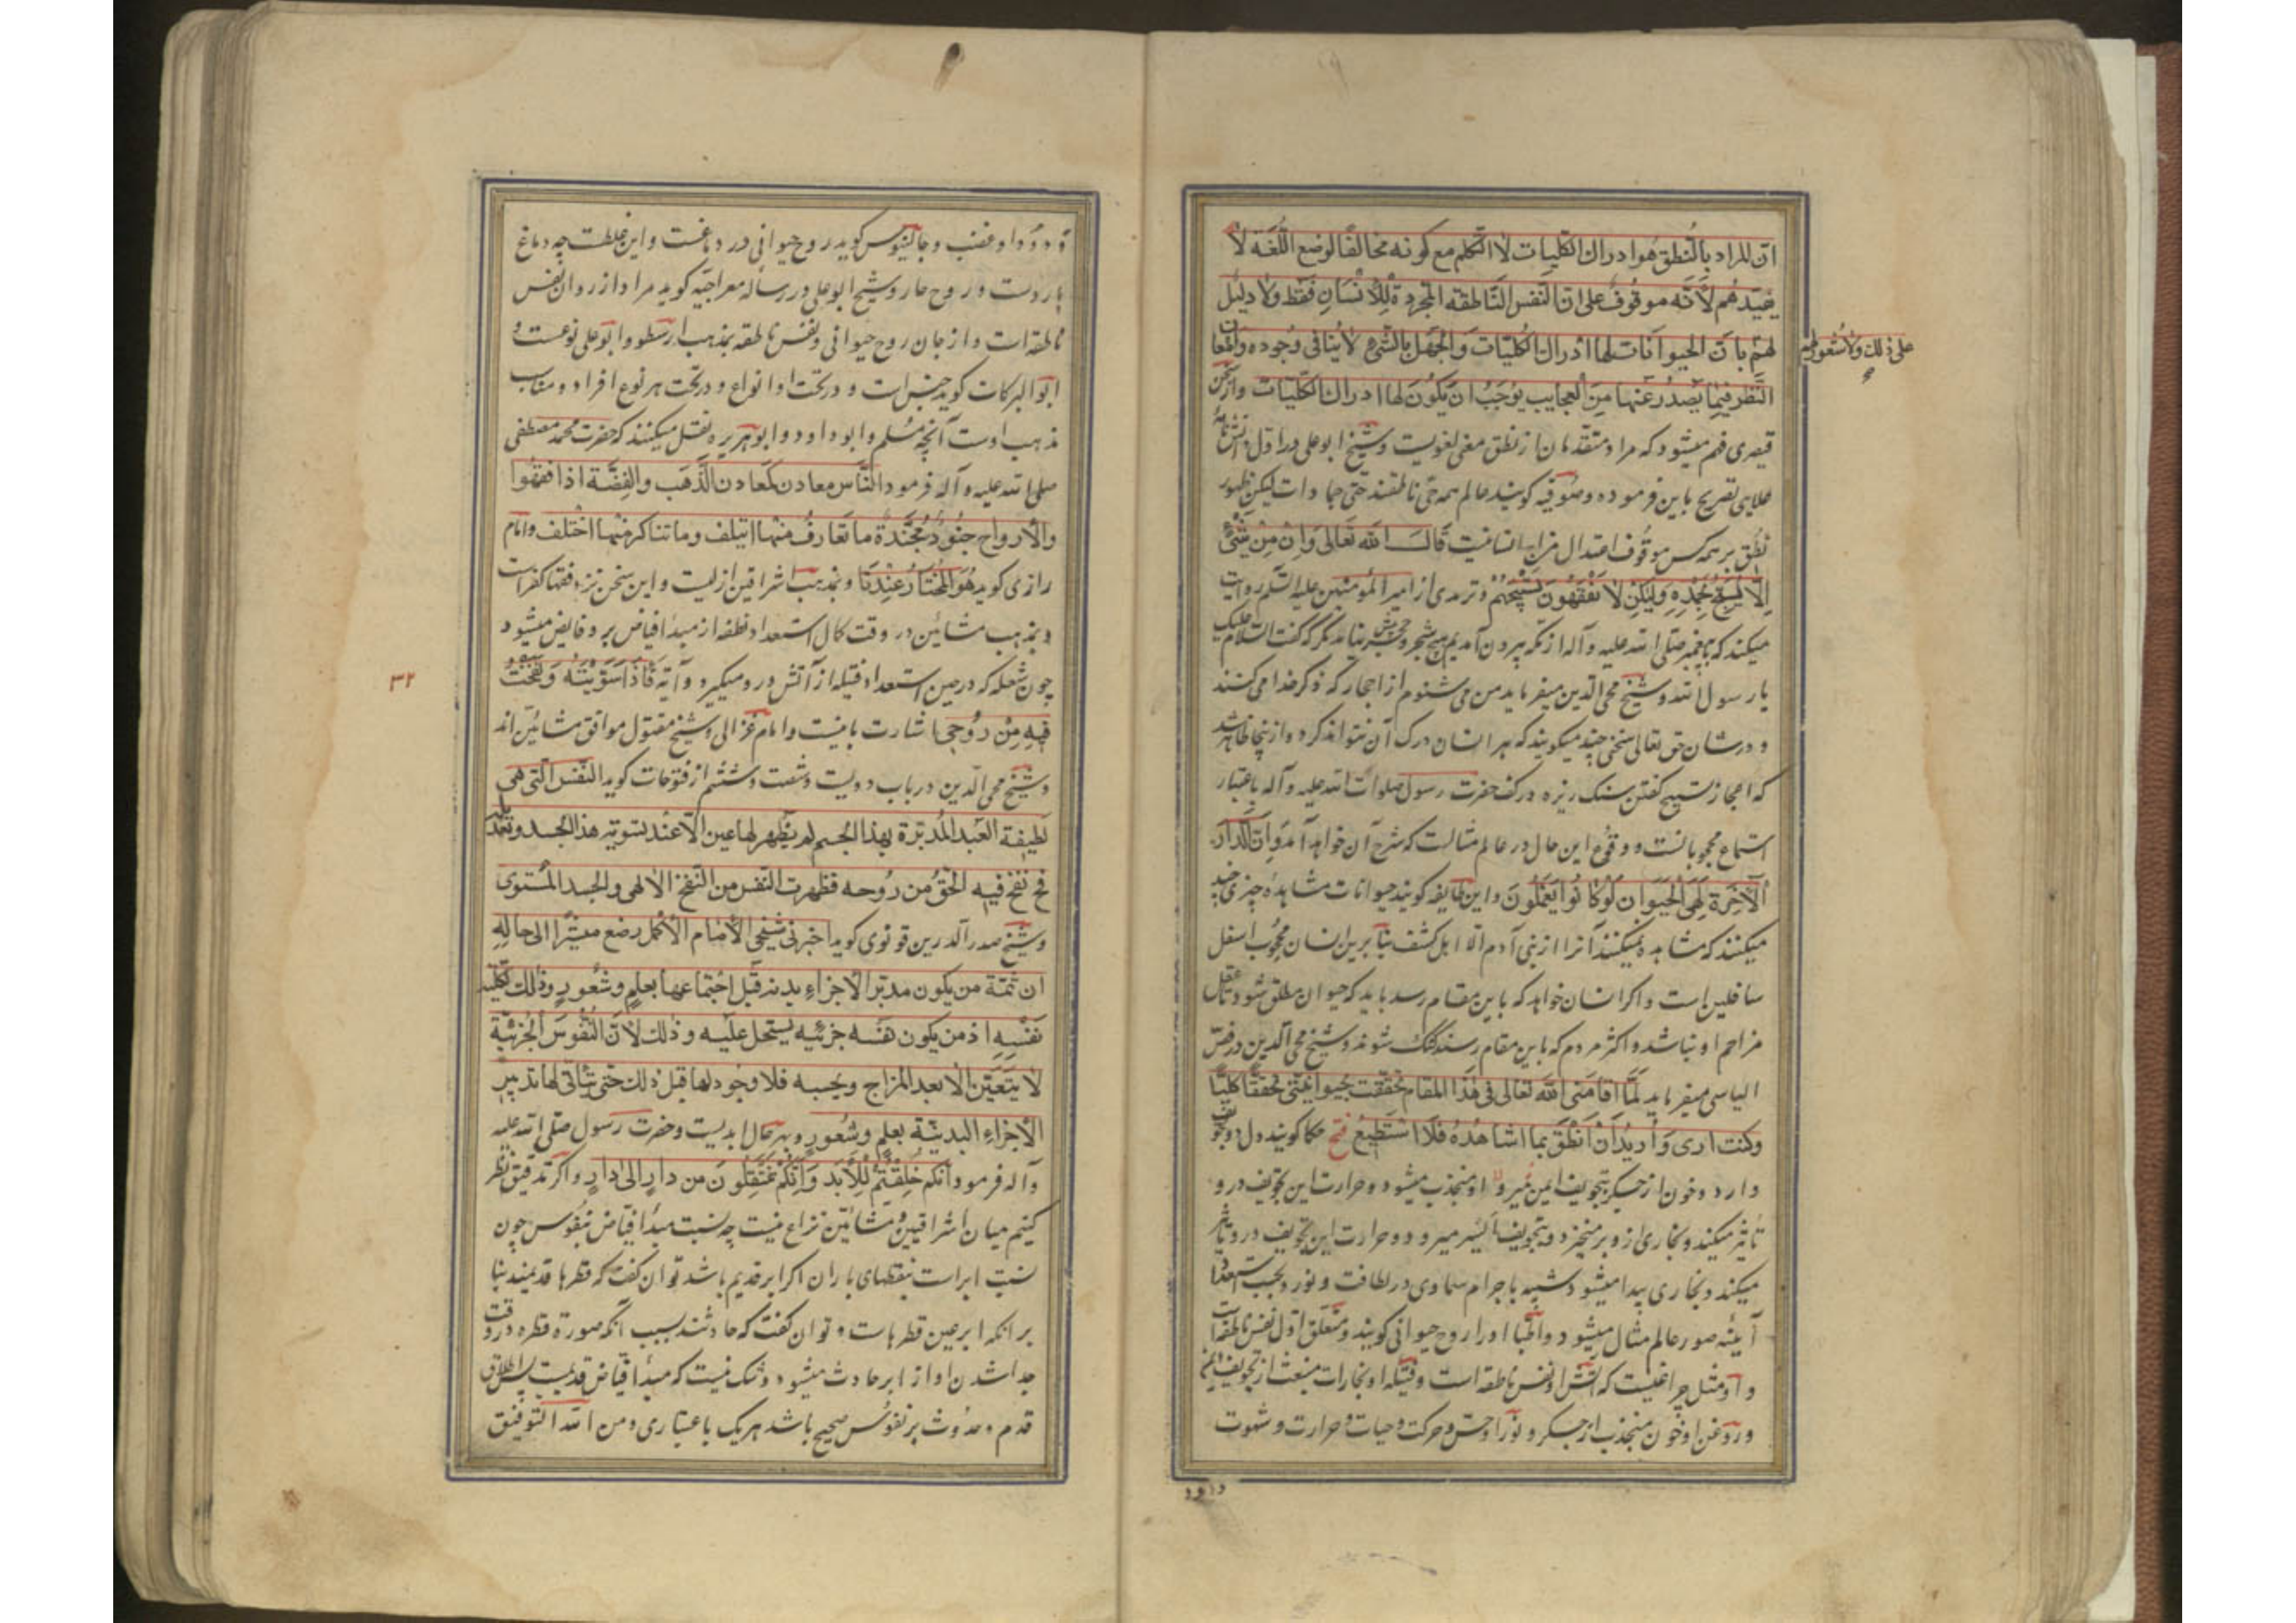 ان المراد بالنطق هو ادراك الكليات لا التكلم مع كونه مخالفا لوضع اللغة لا
يفيدهم لأنه موقوف على ان النفس الناطقة المجردة للانسان فقط ولا دليل
على ذلك ولا شعور لهم
لهم بان الحيوانات لها ادراك الكليات والجهل بالشئ لا ينافى وجوده وامعان
النظر فيما يصدر عنها من العجايب يوجب ان يكون لها ادراك الكليات وازسخن
قيصرى فهم ميشود كه مراد متقدمان از نطق معنى لغويست وشيخ ابو على در اول دانش نامه
علايى تصريح باين فرموده وصوفيه كويند عالم همه حى ناطقند حتى جمادات ليكن ظهور
نطق بر همه كس موقوف اعتدال مزاج انسانيت قال الله تعالى وان من شئ
الا يسبح بحمده ولكن لا تفقهون تسبيحهم وترمدى از امير المؤمنين عليه السلم روايت
ميكند كه با پيغمبر صلى الله عليه وآله از مكه بيرون آمديم هيچ شجر وحجر پيش نيامد مكر كه كفت السلام عليك
يا رسول الله وشيخ محى الدين ميفرمايد من مى شنوم از احجار كه ذكر خدا مى كنند
ودر شان حق تعالى سخنى چند ميكويند كه هر انسان درك آن نتواند كرد وازينجا ظاهر شد
كه اعجاز تسبيح كفتن سنك ريزه در كف حضرت رسول صلوات الله عليه وآله باعتبار
استماع محجوبانست ووقوع اين حال در عالم مثالست كه شرح آن خواهد آمد وان الدار
الآخرة لهى الحيوان لو كانوا يعلمون واين طايفه كويند حيوانات مشاهده چيزى چند
ميكنند كه مشاهده نميكنند آنرا از بنى آدم الا اهل كشف بنابرين انسان محجوب اسفل
سافلين است واكر انسان خواهد كه باين مقام رسد بايد كه حيوان مطلق شود تا عقل
مزاحم او نباشد واكثر مردم كه باين مقام رسند كنك شوند وشيخ محى الدين در فص
الياسى ميفرمايد لما اقامنى الله تعالى فى هذا المقام تحققت بحيوانيتى تحققا كليا
وكنت ارى واريد ان انطق بما اشاهده فلا استطيع فتح حكما كويند دل دو تجويف
دارد وخون از جكر بتجويف ايمن ميرود او منجذب ميشود وحرارت اين تجويف درو
تاثير ميكند وبخارى ازو برميخيزد وبتجويف ايسر ميرود وحرارت اين تجويف درو تاثير
ميكند وبخارى پيدا ميشود شبيه باجرام سماوى در لطافت ونور وبحسب استعداد
آيينه صور عالم مثال ميشود واطبا او را روح حيوانى كويند ومتعلق اول نفس ناطقه است
واو مثل چراغيست كه آتش او نفس ناطقه است وفتيله او بخارات منبعث از تجويف ايمن
وروغن او خون منجذب از جكر ونور او حس وحركت وحيات وحرارت وشهوت
ودود او
ودود او غضب وجالينوس كويد روح حيوانى در دماغست واين غلطست چه دماغ
باردست وروح حار وشيخ ابو على در رساله معراجيه كويد مراد از روان نفس
ناطقه است واز جان روح حيوانى ونفس ناطقه بمذهب ارسطو وابو على نوعست و
ابو البركات كويد جنس است ودر تحت او انواع ودر تحت هر نوع افراد ومناسب
مذهب اوست آنچه مسلم وابو داود وابو هريره نقل ميكنند كه حضرت محمد مصطفى
صلى الله عليه وآله فرمود الناس معادن كمعادن الذهب والفضة اذا فقهوا
والارواح جنود مجندة ما تعارف منها ايتلف وما تناكر منها اختلف وامام
رازى كويد هو المختار عندنا وبمذهب اشراقيين ازليست واين سخن نزد فقها كفر است
وبمذهب مشائين در وقت كمال استعداد نطفه از مبدأ فياض برو فايض ميشود
چون شعله كه در حين استعداد فتيله از آتش درو ميكيرد وآيه فاذا سويته ونفخت
٣٢
فيه من روحى اشارت باينست وامام غزالى وشيخ مقتول موافق مشائين اند
وشيخ محى الدين در باب دويست وشصت وششم از فتوحات كويد النفس التى هى
لطيفة العبد المدبرة بهذا الجسم لم يظهر لها عين الا عند تسويه هذا الجسد وتعديله
فح نفخ فيه الحق من روحه فظهرت النفس من النفخ الالهى والجسد المستوى
وشيخ صدر الدين قونوى كويد اخبرنى شيخى الامام الاكمل رضع مشيرا الى حاله
ان ثمة من يكون مدبر الاجزاء بدنه قبل اجتماعها بعلم وشعور وذلك لكليه
نفسه اذ من يكون نفسه جزئيه يستحيل عليه وذلك لان النفوس الجزئية
لا يتعين الا بعد المزاج وبحسبه فلا وجود لها قبل ذلك حتى يتاتى لها تدبير
الاجزاء البدنية بعلم وشعور وبهر حال ابديست وحضرت رسول صلى الله عليه
وآله فرمود انكم خلقتم للابد وانكم تنتقلون من دار الى دار واكر تدقيق نظر
كنيم ميان اشراقيين ومشائين نزاع نيست چه نسبت مبدأ فياض بنفوس چون
نسبت ابر است بنقطهاى باران اكر ابر قديم باشد توان كفت كه قطرها قديمند بنا
بر آنكه ابر عين قطرهاست وتوان كفت كه حادثند بسبب آنكه صورة قطره در وقت
جدا شدن او از ابر حادث ميشود وشك نيست كه مبدأ فياض قديمست پس اطلاق
قدم وحدوث بر نفوس صحيح باشد هريك باعتبارى ومن الله التوفيق